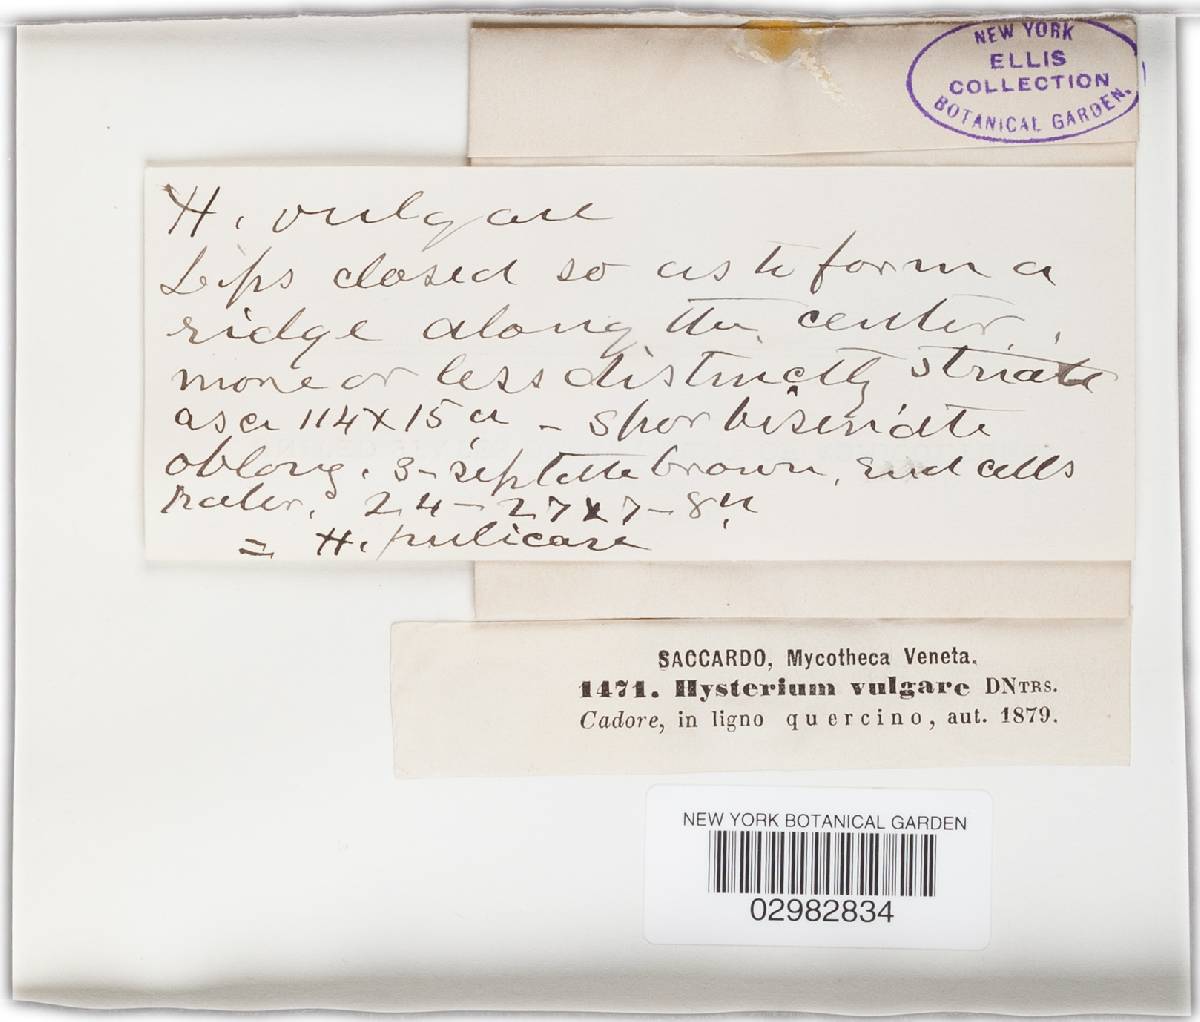 NEW YORK
ELLIS
COLLECTION
BOTANICAL GARDEN.
H. vulgare
Lips closed so as to form a
ridge along the center,
more or less distinctly striate
asci 114 x 15 µ - spor biseriate
oblong. 3-septate brown, end cells
paler. 24-27 x 7-8 µ
= H. pulicare
SACCARDO, Mycotheca Veneta.
1471. Hysterium vulgare DNTRS.
Cadore, in ligno quercino, aut. 1879.
NEW YORK BOTANICAL GARDEN
02982834